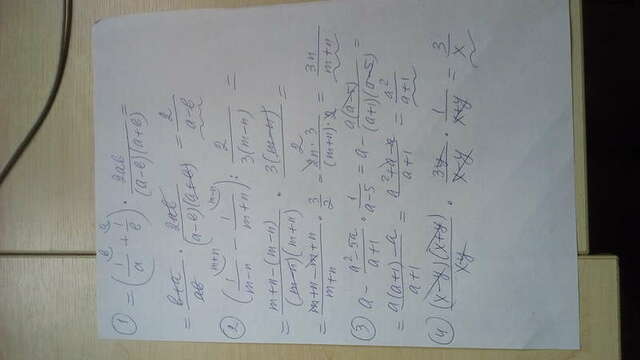 ① = (1/a + 1/в) · 2ав/((а-в)(а+в)) =
= (в+а)/ав · 2ав/((а-в)(а+в)) = 2/(а-в)
② (1/(m-n) - 1/(m+n)) : 2/(3(m-n)) =
= (m+n-(m-n))/((m-n)(m+n)) · 3(m-n)/2 =
= (m+n-m+n)/(m+n) · 3/2 = 2n·3/((m+n)·2) = 3n/(m+n)
③ a - (a²-5a)/(a+1) · 1/(a-5) = a - a(a-5)/((a+1)(a-5)) =
= (a(a+1)-a)/(a+1) = (a²+a-a)/(a+1) = a²/(a+1)
④ (x-y)(x+y)/xy · 3y/(x-y) · 1/(x+y) = 3/x